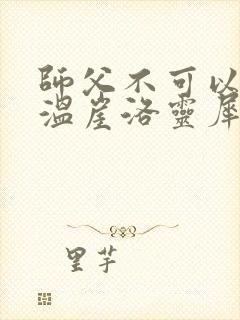 師父不可以
溫崖洛靈犀
里芋